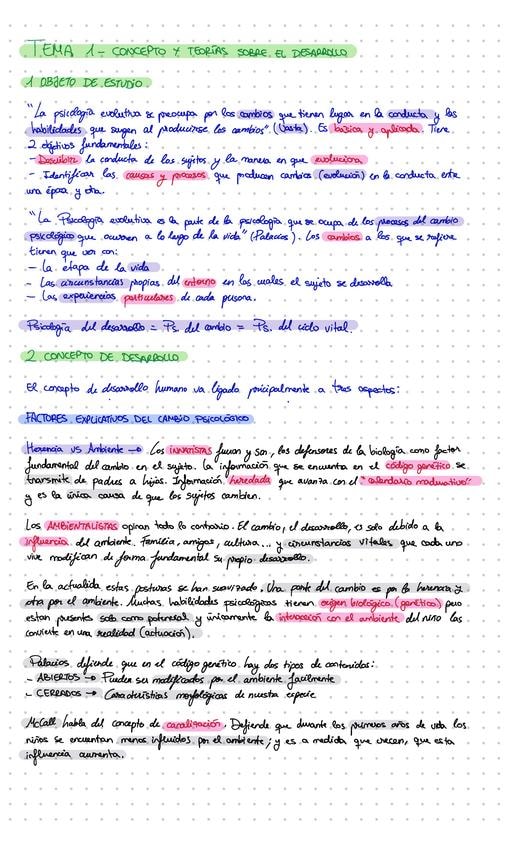 TEMA 1 - CONCEPTO Y TEORÍAS SOBRE EL DESARROLLO
1 OBJETO DE ESTUDIO
"La psicología evolutiva se preocupa por los cambios que tienen lugar en la conducta y las
habilidades que surgen al producirse los cambios" (Vasta). Es básica y aplicada. Tiene
2 objetivos fundamentales:
- Describir la conducta de los sujetos y la manera en que evoluciona
- Identificar las causas y procesos que producen cambios (evolución) en la conducta entre
una época y otra.
"La Psicología evolutiva es la parte de la psicología que se ocupa de los procesos del cambio
psicológico que ocurren a lo largo de la vida" (Palacios). Los cambios a los que se refiere
tienen que ver con:
- La etapa de la vida
- Las circunstancias propias del entorno en las cuales el sujeto se desarrolla
- Las experiencias particulares de cada persona.
Psicología del desarrollo = Ps. del cambio = Ps. del ciclo vital.
2 CONCEPTO DE DESARROLLO
El concepto de desarrollo humano va ligado principalmente a tres aspectos:
FACTORES EXPLICATIVOS DEL CAMBIO PSICOLÓGICO
Herencia vs Ambiente → Los INNATISTAS fueron y son, los defensores de la biología como factor
fundamental del cambio en el sujeto. La información que se encuentra en el código genético se
transmite de padres a hijos. Información heredada que avanza con el "calendario madurativo"
y es la única causa de que los sujetos cambien.
Los AMBIENTALISTAS opinan todo lo contrario. El cambio, el desarrollo, es solo debido a la
influencia del ambiente. Familia, amigos, cultura... y circunstancias vitales que cada uno
vive modifican de forma fundamental su propio desarrollo.
En la actualida estas posturas se han suavizado. Una parte del cambio es por la herencia y
otra por el ambiente. Muchas habilidades psicológicas tienen origen biológico (genético) pero
estan presentes solo como potencial y únicamente la interacción con el ambiente del niño las
convierte en una realidad (actuación).
Palacios defiende que en el código genético hay dos tipos de contenidos:
- ABIERTOS → Pueden ser modificados por el ambiente facilmente
- CERRADOS → Características morfológicas de nuestra especie
McCall habla del concepto de canalización. Defiende que durante los primeros años de vida los
niños se encuentran menos influidos por el ambiente; y es a medida que crecen, que esta
influencia aumenta.